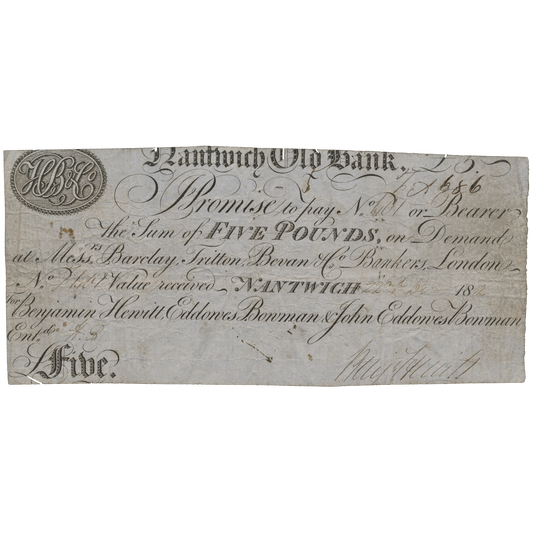 Nantwich Old Bank, £5
HB&Co
686
I Promise to pay No or Bearer
the Sum of FIVE POUNDS, on Demand
at Messrs Barclay, Tritton, Bevan & Co Bankers, London
No Value received NANTWICH 18
For Benjamin Hewitt, Eddowes Bowman & John Eddowes Bowman
Entd
£Five.
Benj Hewitt